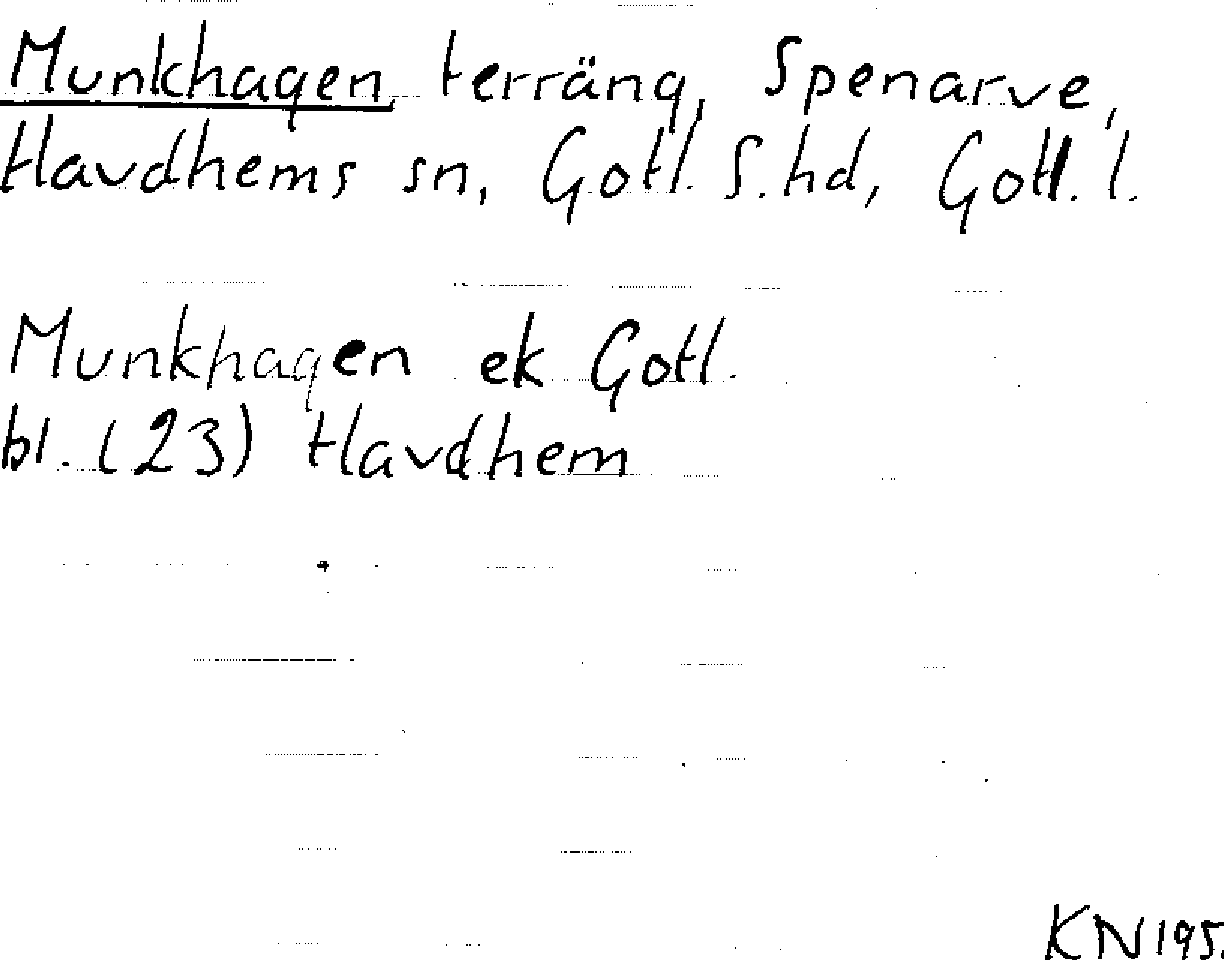 Munkhagen terräng, Spenarve,
Havdhems sn, Gotl. S. hd, Gotl. l.
Munkhagen ek Gotl.
bl. (23) Havdhem
KN195.